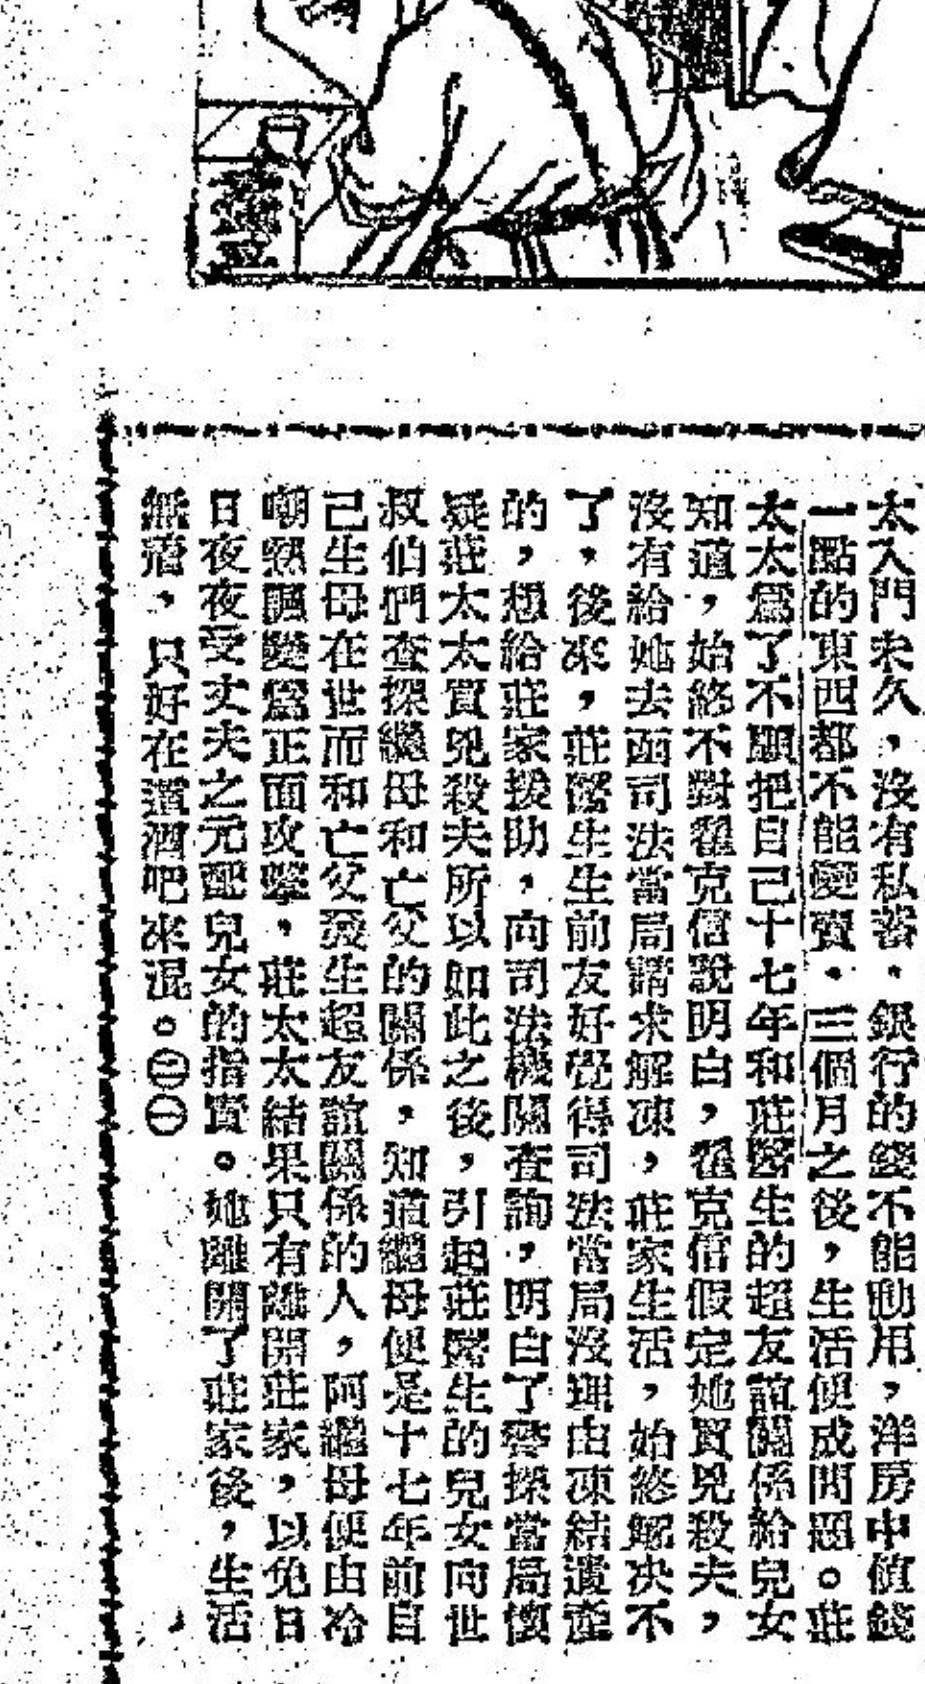 太入門未久，沒有私蓄，銀行的錢不能動用，洋房中值錢
一點的東西都不能變賣，三個月之後，生活便成問題。莊
太太爲了不願把自己十七年和莊醫生的超友誼關係給兒女
知道，始終不對霍克信說明白，霍克信假定她買兇殺夫，
沒有給她去函司法當局請求解凍，莊家生活，始終解決不
了，後來，莊醫生生前友好覺得司法當局沒理由凍結遺產
的，想給莊家援助，向司法機關查詢，明白了警探當局懷
疑莊太太買兇殺夫所以如此之後，引起莊醫生的兒女向世
叔伯們查探繼母和亡父的關係，知道繼母便是十七年前自
己生母在世而和亡父發生超友誼關係的人，阿繼母便由冷
嘲熱諷變爲正面攻擊，莊太太結果只有離開莊家，以免日
日夜夜受丈夫之元配兒女的指責。她離開了莊家後，生活
無着，只好在這酒吧來混。㊁㊀